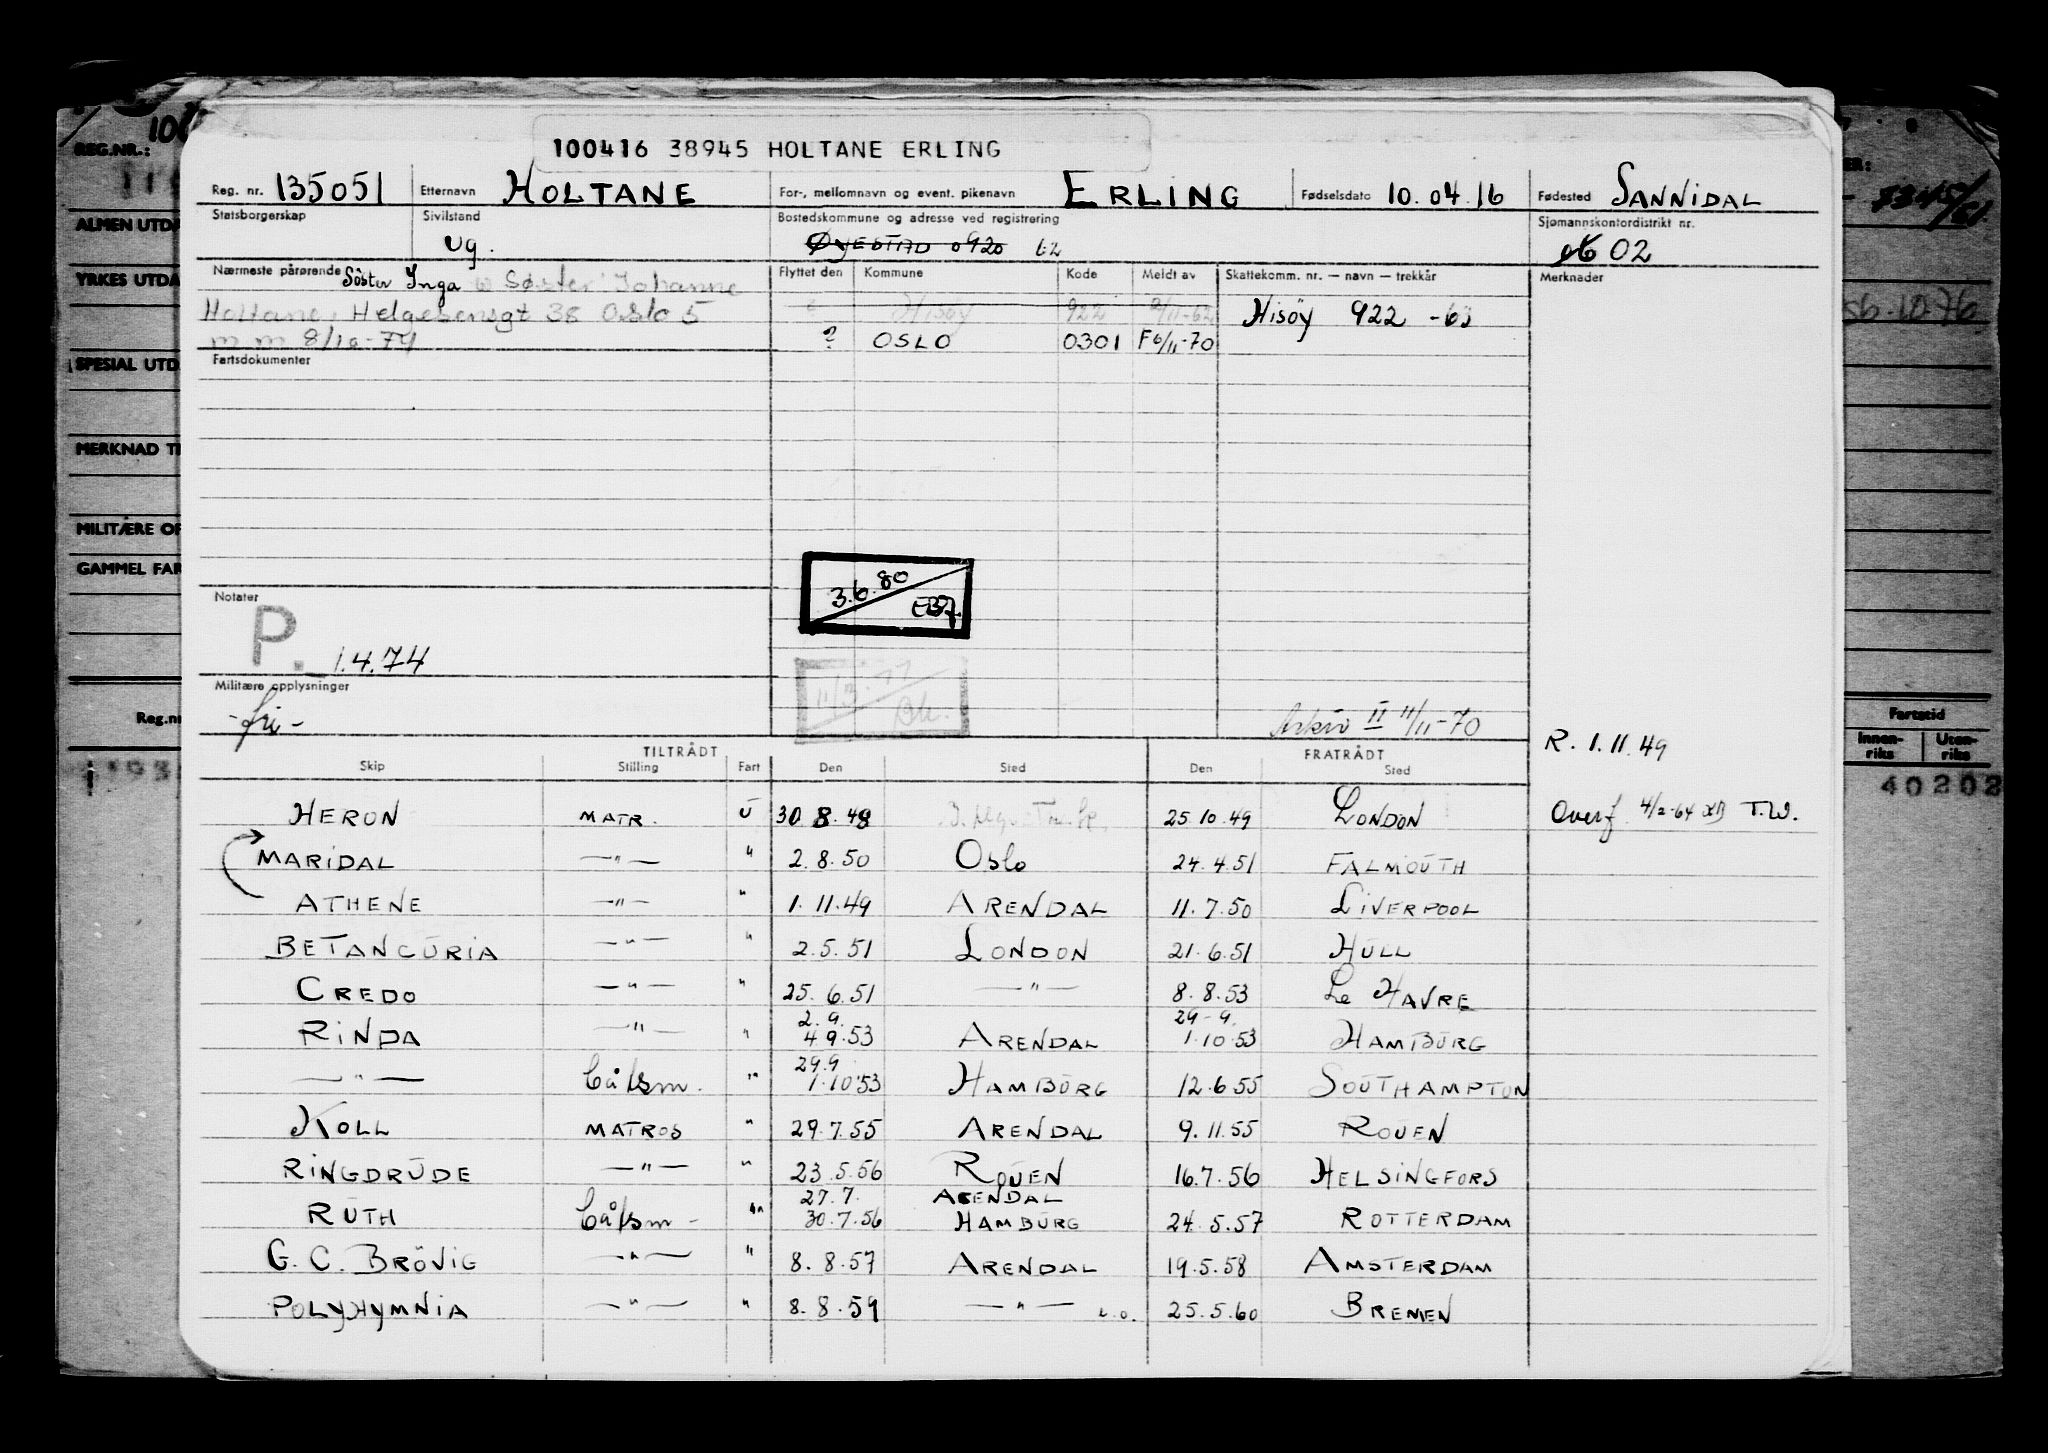 100416 38945 HOLTANE ERLING
Reg. nr. 135051 Etternavn HOLTANE For-, mellomnavn og event. pikenavn ERLING Fødselsdato 10.04.16 Fødested SANNIDAL
Statsborgerskap Sivilstand ug. Bostedskommune og adresse ved registrering ØYESTAD 0920 62 Sjømannskontordistrikt nr. 02
Nærmeste pårørende Söster Inga Søster Johanne Flyttet den Kommune Kode Meldt av Skattekomm. nr. — navn — trekkår Merknader
Holtane, Helgesensgt 38 Oslo 5 Hisøy 922 2/11-62 Hisöy 922 -63
m m 8/10-74 ? OSLO 0301 F 6/11-70
Fartsdokumenter
3.6.80
Notater
P. 1.4.74
11/3.77
Militære opplysninger
-fri- Arkiv II 11/11-70
R. 1.11.49
TILTRÅDT FRATRÅDT
Skip Stilling Fart Den Sted Den Sted
HERON MATR. U 30.8.48 25.10.49 LONDON Overf 4/2-64 T.W.
MARIDAL —"— " 2.8.50 OSLO 24.4.51 FALMOUTH
ATHENE —"— " 1.11.49 ARENDAL 11.7.50 LIVERPOOL
BETANCURIA —"— " 2.5.51 LONDON 21.6.51 HULL
CREDO —"— " 25.6.51 —"— 8.8.53 Le HAVRE
2.9. 29-9.
RINDA —"— " 4.9.53 ARENDAL 1.10.53 HAMBURG
29.9
—"— Båtsm. " 1.10.53 HAMBURG 12.6.55 SOUTHAMPTON
KOLL MATROS " 29.7.55 ARENDAL 9.11.55 ROUEN
RINGDRUDE —"— " 23.5.56 ROUEN 16.7.56 HELSINGFORS
27.7. ARENDAL
RUTH Båtsm - " 30.7.56 HAMBURG 24.5.57 ROTTERDAM
G. C. BRÖVIG —"— " 8.8.57 ARENDAL 19.5.58 AMSTERDAM
POLYHYMNIA —"— " 8.8.59 —"— u.o. 25.5.60 BREMEN
REG.NR.:
ALMEN UTDA
YRKES UTDA
SPESIAL UTD
MERKNAD TI
MILITÆRE OP
GAMMEL FAR
Reg.nr
56.10.76
Fartstid
Innenriks Utenriks
40202